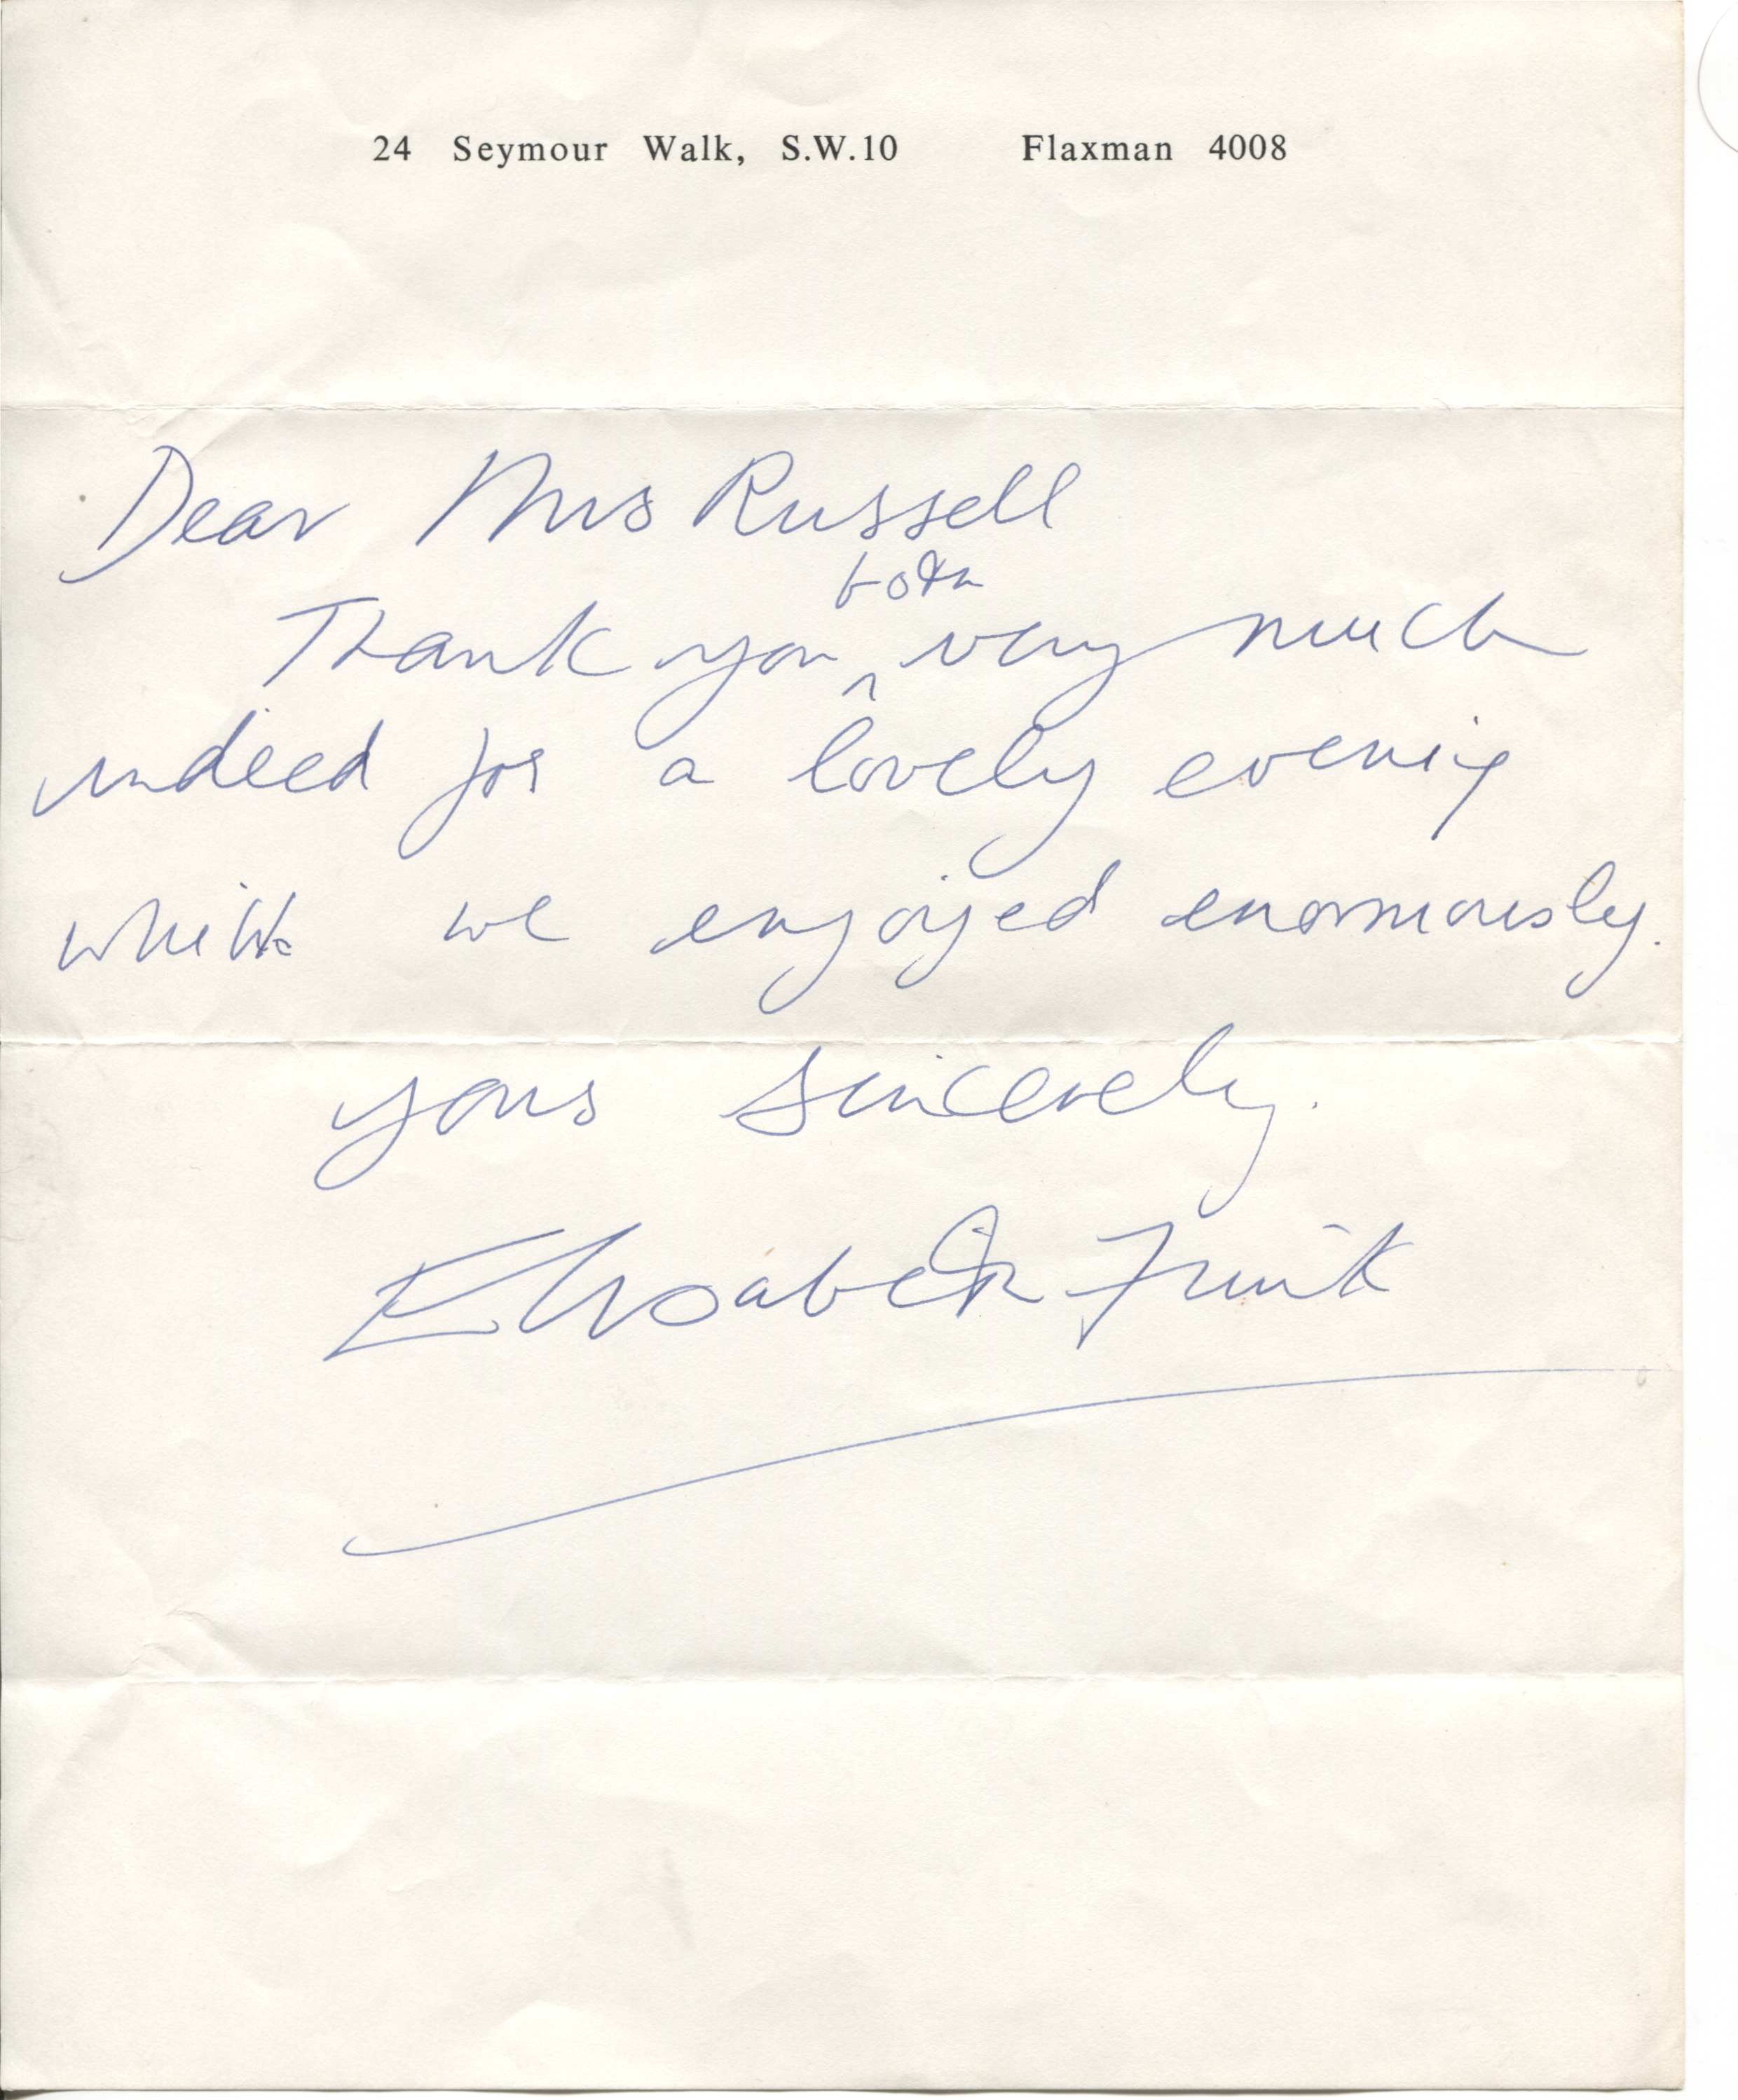 24 Seymour Walk, S.W.10 Flaxman 4008
Dear Mrs Russell
both
Thank you ^ very much
indeed for a lovely evening
which we enjoyed enormously.
yours sincerely.
Elisabeth Frink